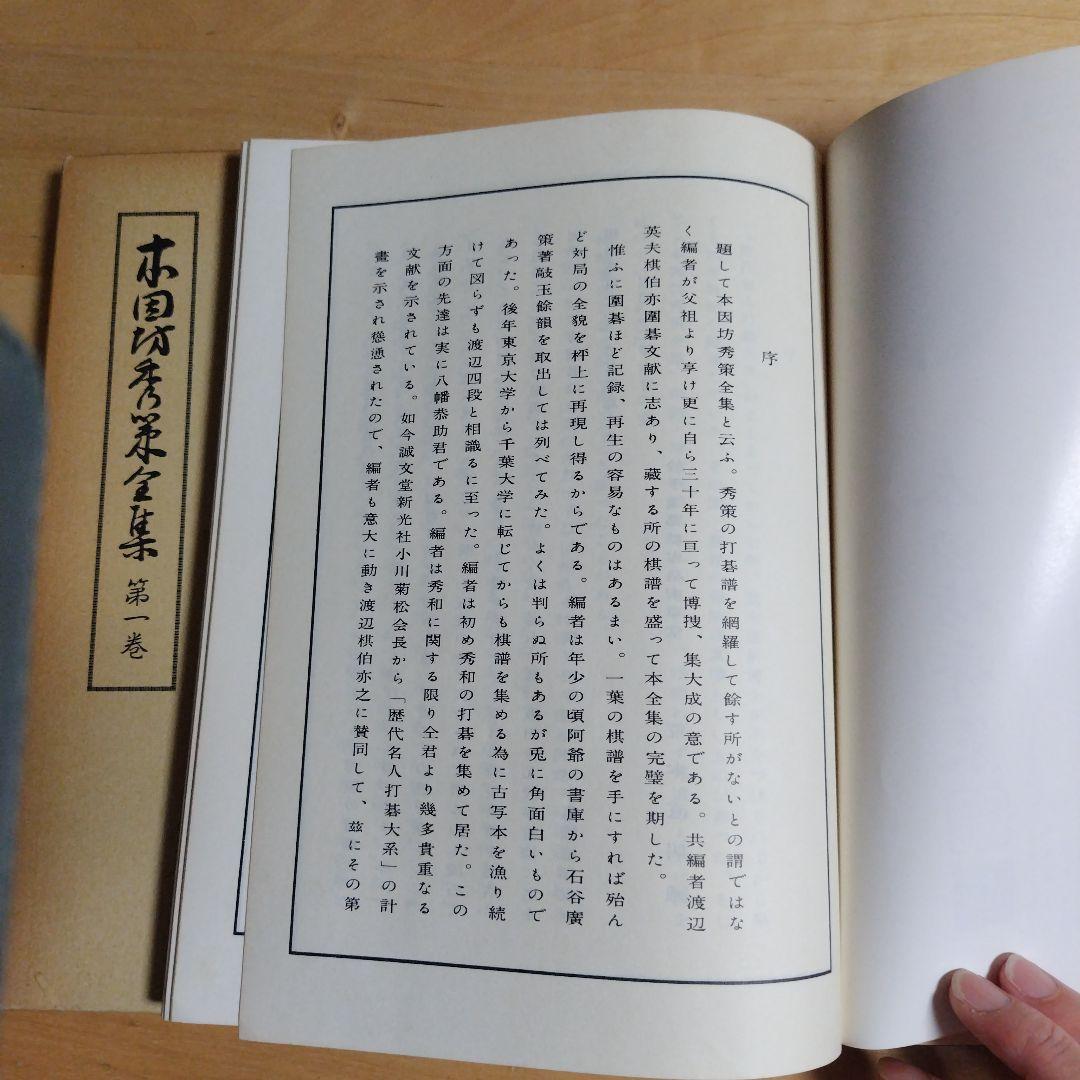 本因坊秀策全集 第一巻
序
題して本因坊秀策全集と云ふ。秀策の打碁譜を網羅して餘す所がないとの謂ではな
く編者が父祖より享け更に自ら三十年に亘って博捜、集大成の意である。共編者渡辺
英夫棋伯亦圍碁文献に志あり、藏する所の棋譜を盛って本全集の完璧を期した。
惟ふに圍碁ほど記録、再生の容易なものはあるまい。一葉の棋譜を手にすれば殆ん
ど対局の全貌を枰上に再現し得るからである。編者は年少の頃阿爺の書庫から石谷廣
策著敲玉餘韻を取出しては列べてみた。よくは判らぬ所もあるが兎に角面白いもので
あった。後年東京大学から千葉大学に転じてからも棋譜を集める為に古写本を漁り続
けて図らずも渡辺四段と相識るに至った。編者は初め秀和の打碁を集めて居た。この
方面の先達は実に八幡恭助君である。編者は秀和に関する限り仝君より幾多貴重なる
文献を示されている。如今誠文堂新光社小川菊松会長から「歴代名人打碁大系」の計
畫を示され慫慂されたので、編者も意大に動き渡辺棋伯亦之に賛同して、茲にその第